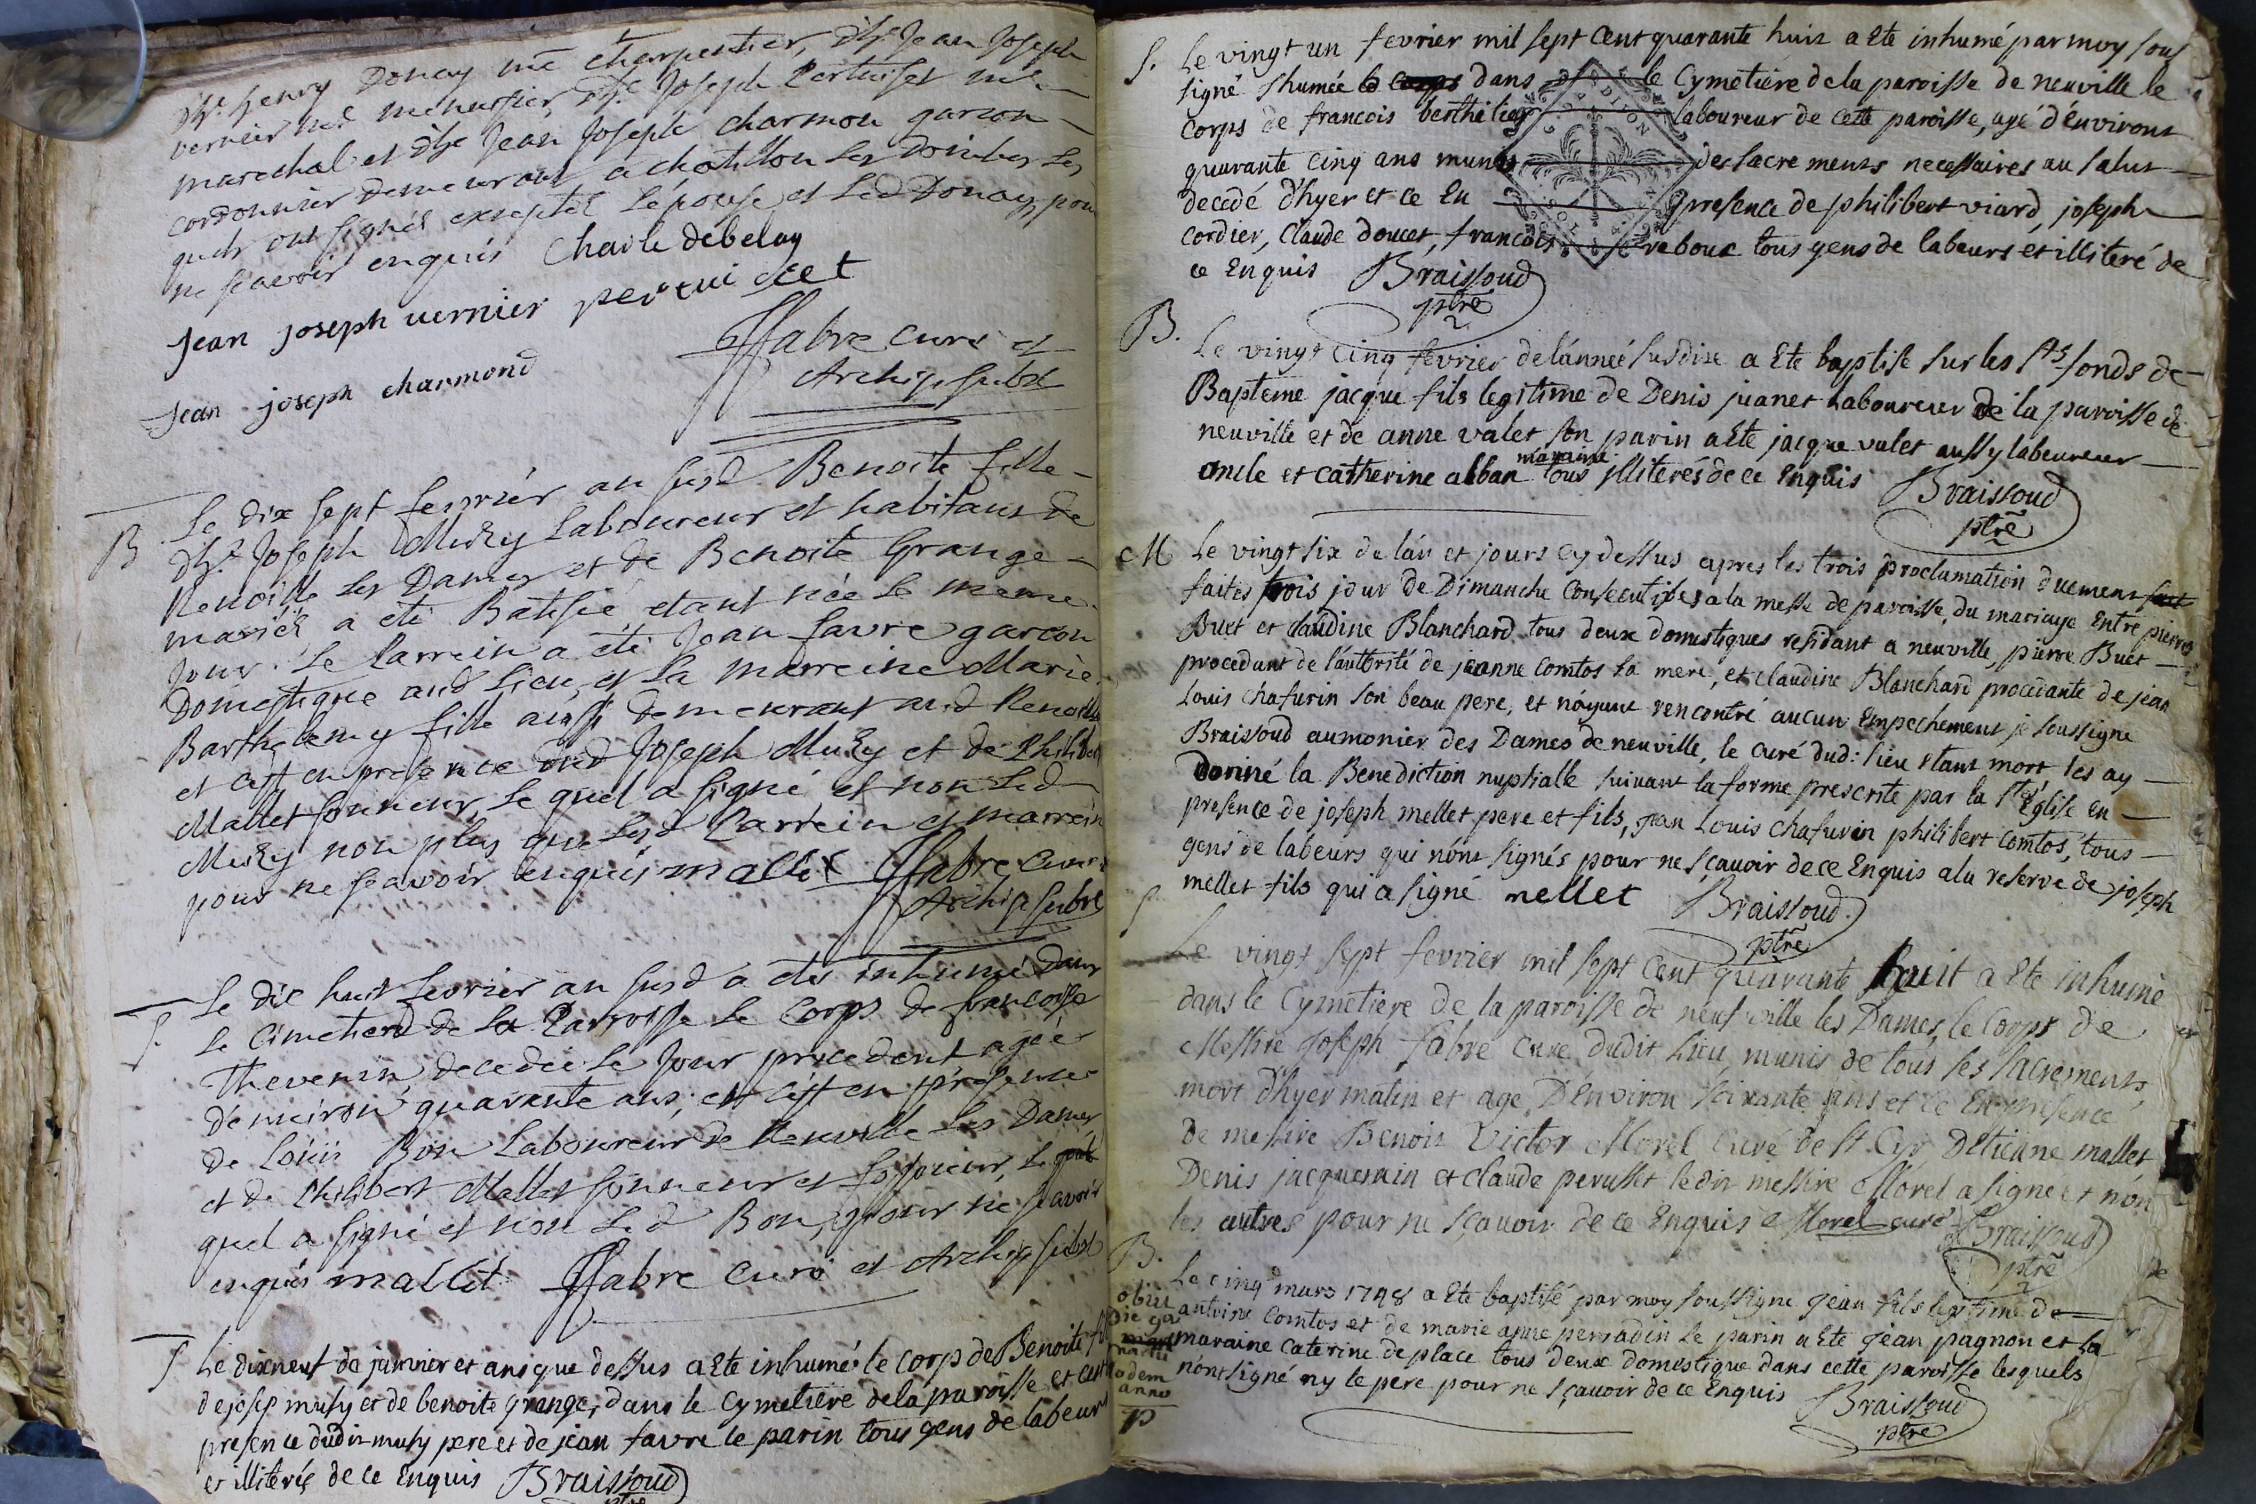 Sr. henry Donay me charpentier, Sr. Jean Joseph
vernier me menuisier, Sr. Joseph Pertuiset me
marechal et Sr. Jean Joseph charmon garcon
cordonnier demeurant a chatillon les Dombes les
quels ont signés excepté l'épouse et led Donay, pour
ne scavoir enquis Charle debelay
Jean joseph vernier pertuiset
Jean joseph charmond
JFabre curé et
Archip subst
B. Le dix sept fevrier an susd Benoite fille
Sr. Joseph Muzy Laboureur et habitant de
Neuville les Dames et de Benoite Grange
mariés a été Batisée étant née le meme
jour. Le Parrein a été Jean favre garcon
Domestique aud Lieu, et la marreine Marie
Barthelemy fille aussi demeurant aud Neuville
et cest en presence dud Joseph Muzy et de Philibert
Mallet sonneur, le quel a signé et non led
Muzy non plus que lesd Parrein et marrein
pour ne scavoir enquis mallet JFabre Curé
Archip subst
S. Le dix huit fevrier an susd a été inhumé dans
le Cimetiere de la Parroisse le corps de francoise
Thevenin, decedée le jour precedent agée
d'environ quarante ans, et cest en présence
de Louis Bon Laboureur de Neuville les Dames
et de Philibert Mallet sonneur et fossoieur, le
quel a signé et non led Bon, pour ne scavoir
enquis mallet JFabre Curé et Archip subst
S Le dixneuf de janvier et ans que dessus a Ete inhumé le corp de Benoite
de josep musy et de benoite grange, dans le Cymetiere de la paroisse et cest
presence dudit musy pere et de jean favre le parin tous gens de labeur
et illiterés de ce Enquis Braissoud
ptre
S. Le vingt un fevrier mil sept Cent quarante huit a Ete inhumé par moy sous
signé Jhumée le corps dans le Cymetière de la paroisse de neuville le
corps de francois berthelier laboureur de cette paroisse, agé d'énvirons
quarante cinq ans munis des sacrements necessaires au salut
decedé d'hyer et ce En presence de philibert viard, joseph
cordier, Claude doucet, francois reboux tous gens de labeurs et illiteré de
ce Enquis Braissoud
ptre
B. Le vingt Cinq fevrier de lánneé susdite a Ete baptise sur les sts fonds de
Bapteme jacque fils legitime de Denis juanet Laboureur de la paroisse de
neuville et de anne valet son parin a Ete jacque valet aussy laboureur
oncle et Catherine alban maraine tous illiterés de ce Enquis Braissoud
ptre
M Le vingt six de lán et jours cy dessus apres les trois proclamation duement fait
faites trois jour de Dimanche Consecutifes a la messe de paroisse, du mariage Entre pierre
Buet et claudine Blanchard tous deux domestiques residant a neuville, pierre Buet
procedant de láuthorité de jeanne Comtos sa mere, et claudine Blanchard procedante de jean
Louis chafurin son beau pere, et náyant rencontré aucun Empechement je soussigne
Braissoud aumonier des Dames de neuville, le curé dud: lieu etant mort les ay
donné la Benediction nuptialle suivant la forme prescrite par la ste Eglise en
presence de joseph mellet pere et fils, jean Louis chafurin philibert Comtos, tous
gens de labeurs qui nónt signés pour ne sçavoir de ce Enquis a la reserve de joseph
mellet fils qui a signé mellet Braissoud
ptre
S. Le vingt sept fevrier mil sept Cent quarante huit a Ete inhumé
dans le Cymetiere de la paroisse de neufville les Dames, le Corps de
Messire Joseph fabre Curé dudit Lieu munis de tous ses sacrements,
mort d'hyer matin et agé D'énviron soixante ans et ce En presence
de messire Benoit Victor Morel Curé de St Cyr D'etienne mallet
Denis jacquemin et claude perusset ledit messire Morel a signé et nón
les autres pour ne sçavoir de ce Enquis Morel curé Braissoud
ptre
B. Le cinq mars 1748 a Ete baptisé par moy soussigné jean fils legitime de
antoine Comtos et de marie anne perradin le parin a Ete jean pagnon et la
maraine Caterine deplace tous deux domestique dans cette paroisse lesquels
nónt signé ny le pere pour ne sçavoir de ce Enquis Braissoud
ptre
obiit
die
martii
eodem
anno